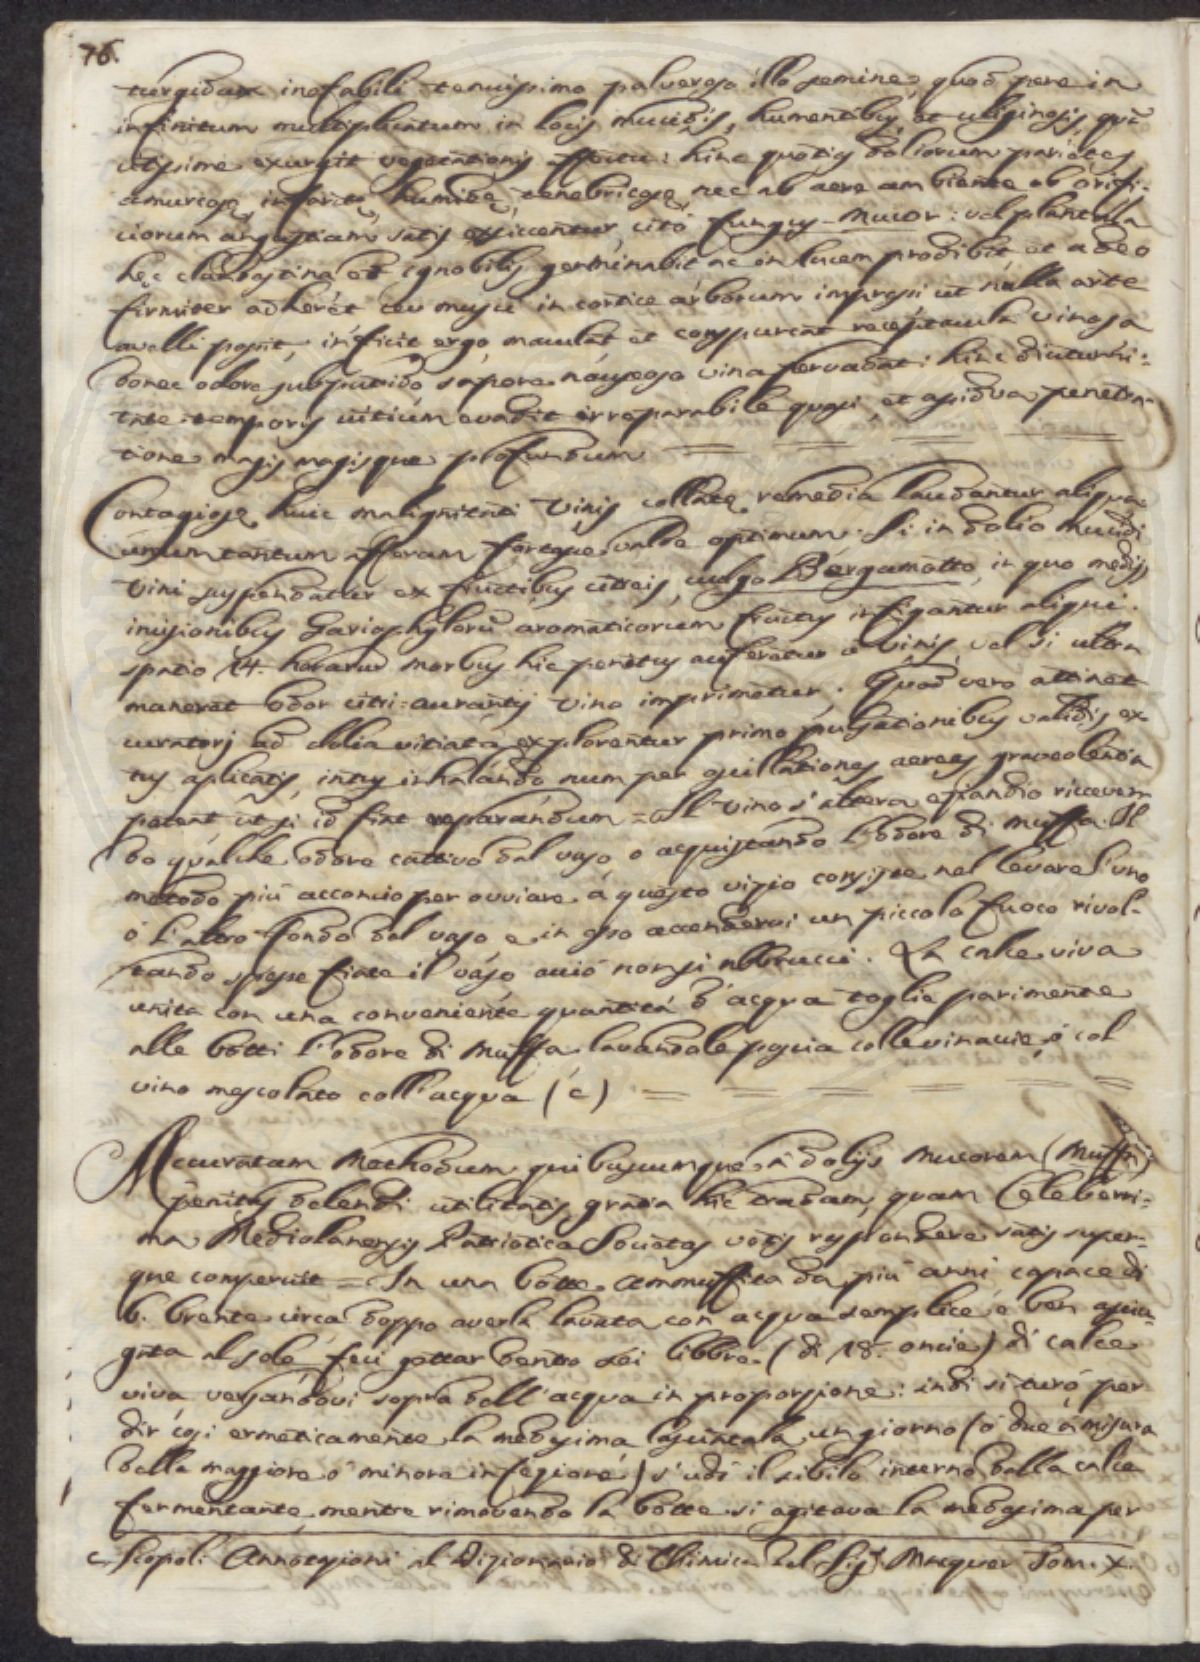 76.
turgidam inefabili tenuissimo pulveroso illo semine, quod pene in
infinitum multiplicatum in locis mucidis, humentibus, et uliginosis, qua
citissime exurgit vegetationis effectu: hinc quoties doliorum parietes
amurcosę, infarctę, humidę, tenebricosę, nec ab aere ambiente ob orifi-
ciorum angustiam satis exsiccentur, citò fungus-Mucor: vel plantula
hęc clandestina et ignobilis germinabit ac in lucem prodibit et adeo
firmiter adheret ceu musci in cortice arborum impressi ut nulla arte
avelli possit, inficit ergo, maculat et conspurcat receptacula vinosa
donec odore subputrido sapore nauseoso vina pervadat: hinc diuturni-
tate temporis vitium evadit irreparabile quasi, et assidua penetra-
tione magis magisque profundum
Contagiosę huic malignitati Vinis collatę remedia laudantur aliqua,
unum tantum afferam forsque valde optimum. Si in dolio mucidi
Vini suspendatur ex fructibus citreis, vulgo Bergamotto, in quo medijs
inisionibus Gariophylorū aromaticorum fructus infigantur aliqui.
spatio 24. horarū morbus hic penitus auferetur a Vinis, vel si ultra
maneret odor citri-aurantij vino imprimetur. Quod vero attinet
curatorj ad dolia vitiata explorentur primo pulsationibus validis ex-
tus aplicatis, intus inhalando num per oscillationes aereas graveolentia
pateat ut si id fiat reparandum = Il Vino s'altera eziandio riceven-
do qualche odore cattivo dal vaso o acquistando l'odore di muffa. Il
metodo più acconcio per ovviare à questo vizio consiste nel levare l'uno
ò l'altro fondo dal vaso e in esso accendervi un piccolo fuoco rivol-
tando spesse fiate il vaso acciò non si abbrucci. La calce viva
unita con una conveniente quantità d'acqua toglie parimente
alle botti l'odore di Muffa lavandole poscia colle vinaccie, ò col
vino mescolato coll'acqua (c)
Accuratam Methodum quibuscumque à dolijs Mucorem (Muffa)
penitus delendi utilitatis gratia hic tradam, quam Celeberri-
ma Mediolanensis Patriotica Societas votis respondere satis super-
que comperuit = In una botte ammuffita da più anni capace di
6. brente circa doppo averla lavata con acqua semplice e ben asciu-
gata al sole feci gettar dentro sei libbre (di 28. oncie) di calce
viva versandovi sopra dell'acqua in proporzione: indi si turò per
dir così ermeticamente la medesima lasciatala un giorno (ò due à misura
della maggiore ò minore infezione) s'udì il sibilo interno della calce
fermentante mentre rimovendo la botte si agitava la medesima per
c. Scopoli Annotazioni al Dizionario di Chimica del Sigr. Macquer Tom. X.